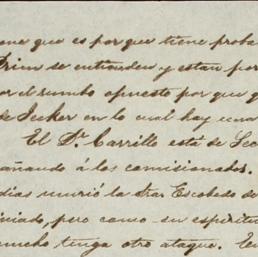 one que es por que tiene proba
Prim se entienden y estan por
por el rumbo opuesto por que q
de Jecker en lo cual hay una
El Dr. Carrillo está de Sec
añando á los comisionados.
dias murió la Sra. Escobedo de
iniado, pero como su espiritu
mucho tenga otro ataque. En